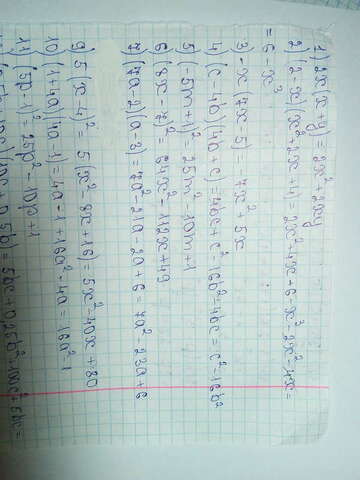 1) 2x(x+y)=2x²+2xy
2) (2-x)(x²+2x+4)=2x²+4x+6-x³-2x²-4x=
=6-x³
3 -x(7x-5)=-7x²+5x
4) (c-4b)(4b+c)=4bc+c²-16b²-4bc=c²-16b²
5) (-5m+1)²=25m²-10m+1
6 (8x-7)²=64x²-112x+49
7) (7a-2)(a-3)=7a²-21a-2a+6=7a²-23a+6
9) 5(x-4)²=5(x²-8x+16)=5x²-40x+80
10 (1+4a)(4a-1)=4a-1+16a²-4a=16a²-1
11) (5p-1)²=25p²-10p+1